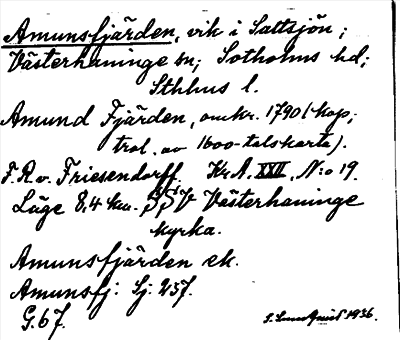 Amunsfjärden, vik i Saltsjön;
Västerhaninge sn; Sotholms hd;
Sthlms l.
Amund Fjärden, omkr. 1790 (kop;
trol. av 1600-talskarta).
F. R. v. Friesendorff. Kr A. XXII, N:o 19.
Läge 8,4 km. SSV Västerhaninge
kyrka.
Amunsfjärden ek.
Amunsfj: Sj: 257.
G. 67.
1936.